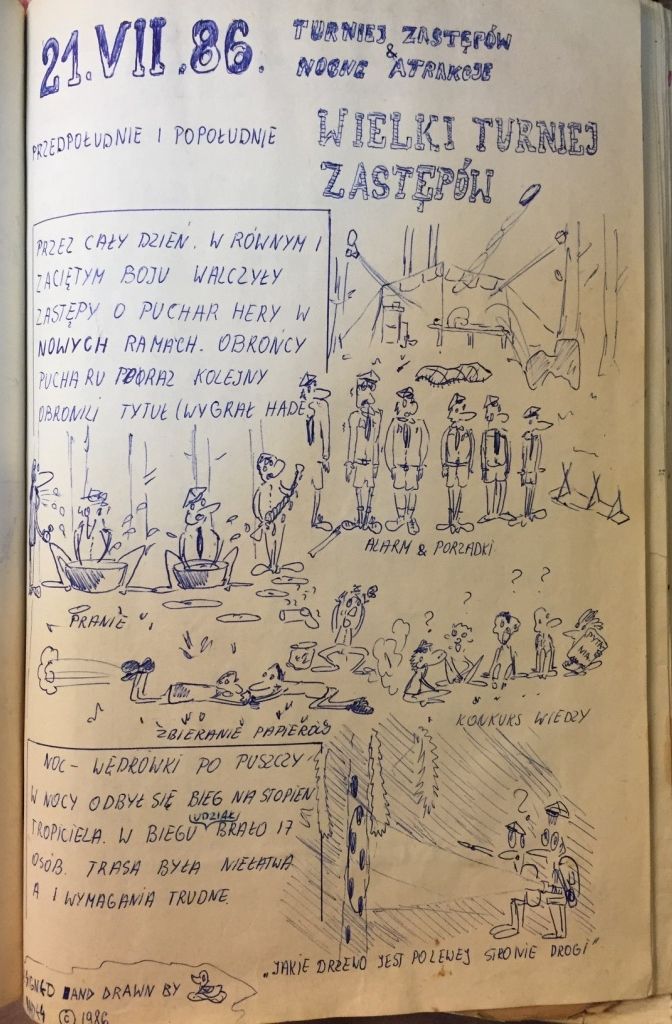 21.VII.86.
TURNIEJ ZASTĘPÓW
&
NOCNE ATRAKCJE
PRZEDPOŁUDNIE I POPOŁUDNIE
WIELKI TURNIEJ
ZASTĘPÓW
PRZEZ CAŁY DZIEŃ. W RÓWNYM I
ZACIĘTYM BOJU WALCZYŁY
ZASTĘPY O PUCHAR HERY W
NOWYCH RAMACH. OBROŃCY
PUCHARU PO RAZ KOLEJNY
OBRONILI TYTUŁ (WYGRAŁ HADES
ALARM & PORZĄDKI
PRANIE
? ? ? ?
PYTA
NIA
ZBIERANIE PAPIERÓW
KONKURS WIEDZY
NOC - WĘDRÓWKI PO PUSZCZY
W NOCY ODBYŁ SIĘ BIEG NA STOPIEŃ
TROPICIELA. W BIEGU UDZIAŁ BRAŁO 17
OSÓB. TRASA BYŁA NIEŁATWA
A I WYMAGANIA TRUDNE.
?
"JAKIE DRZEWO JEST PO LEWEJ STRONIE DROGI"
SIGNED AND DRAWN BY
© 1986